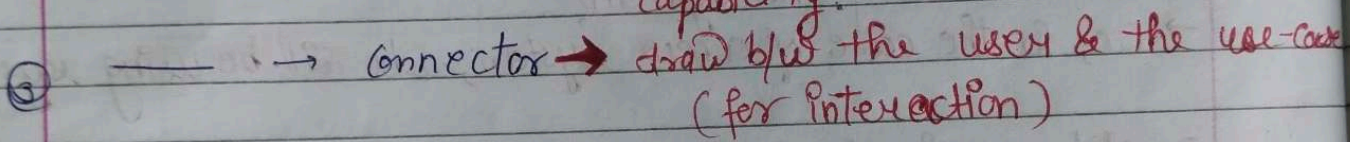 capability.
③ —— . → Connector → draw b/w the user & the use-case
(for interaction)